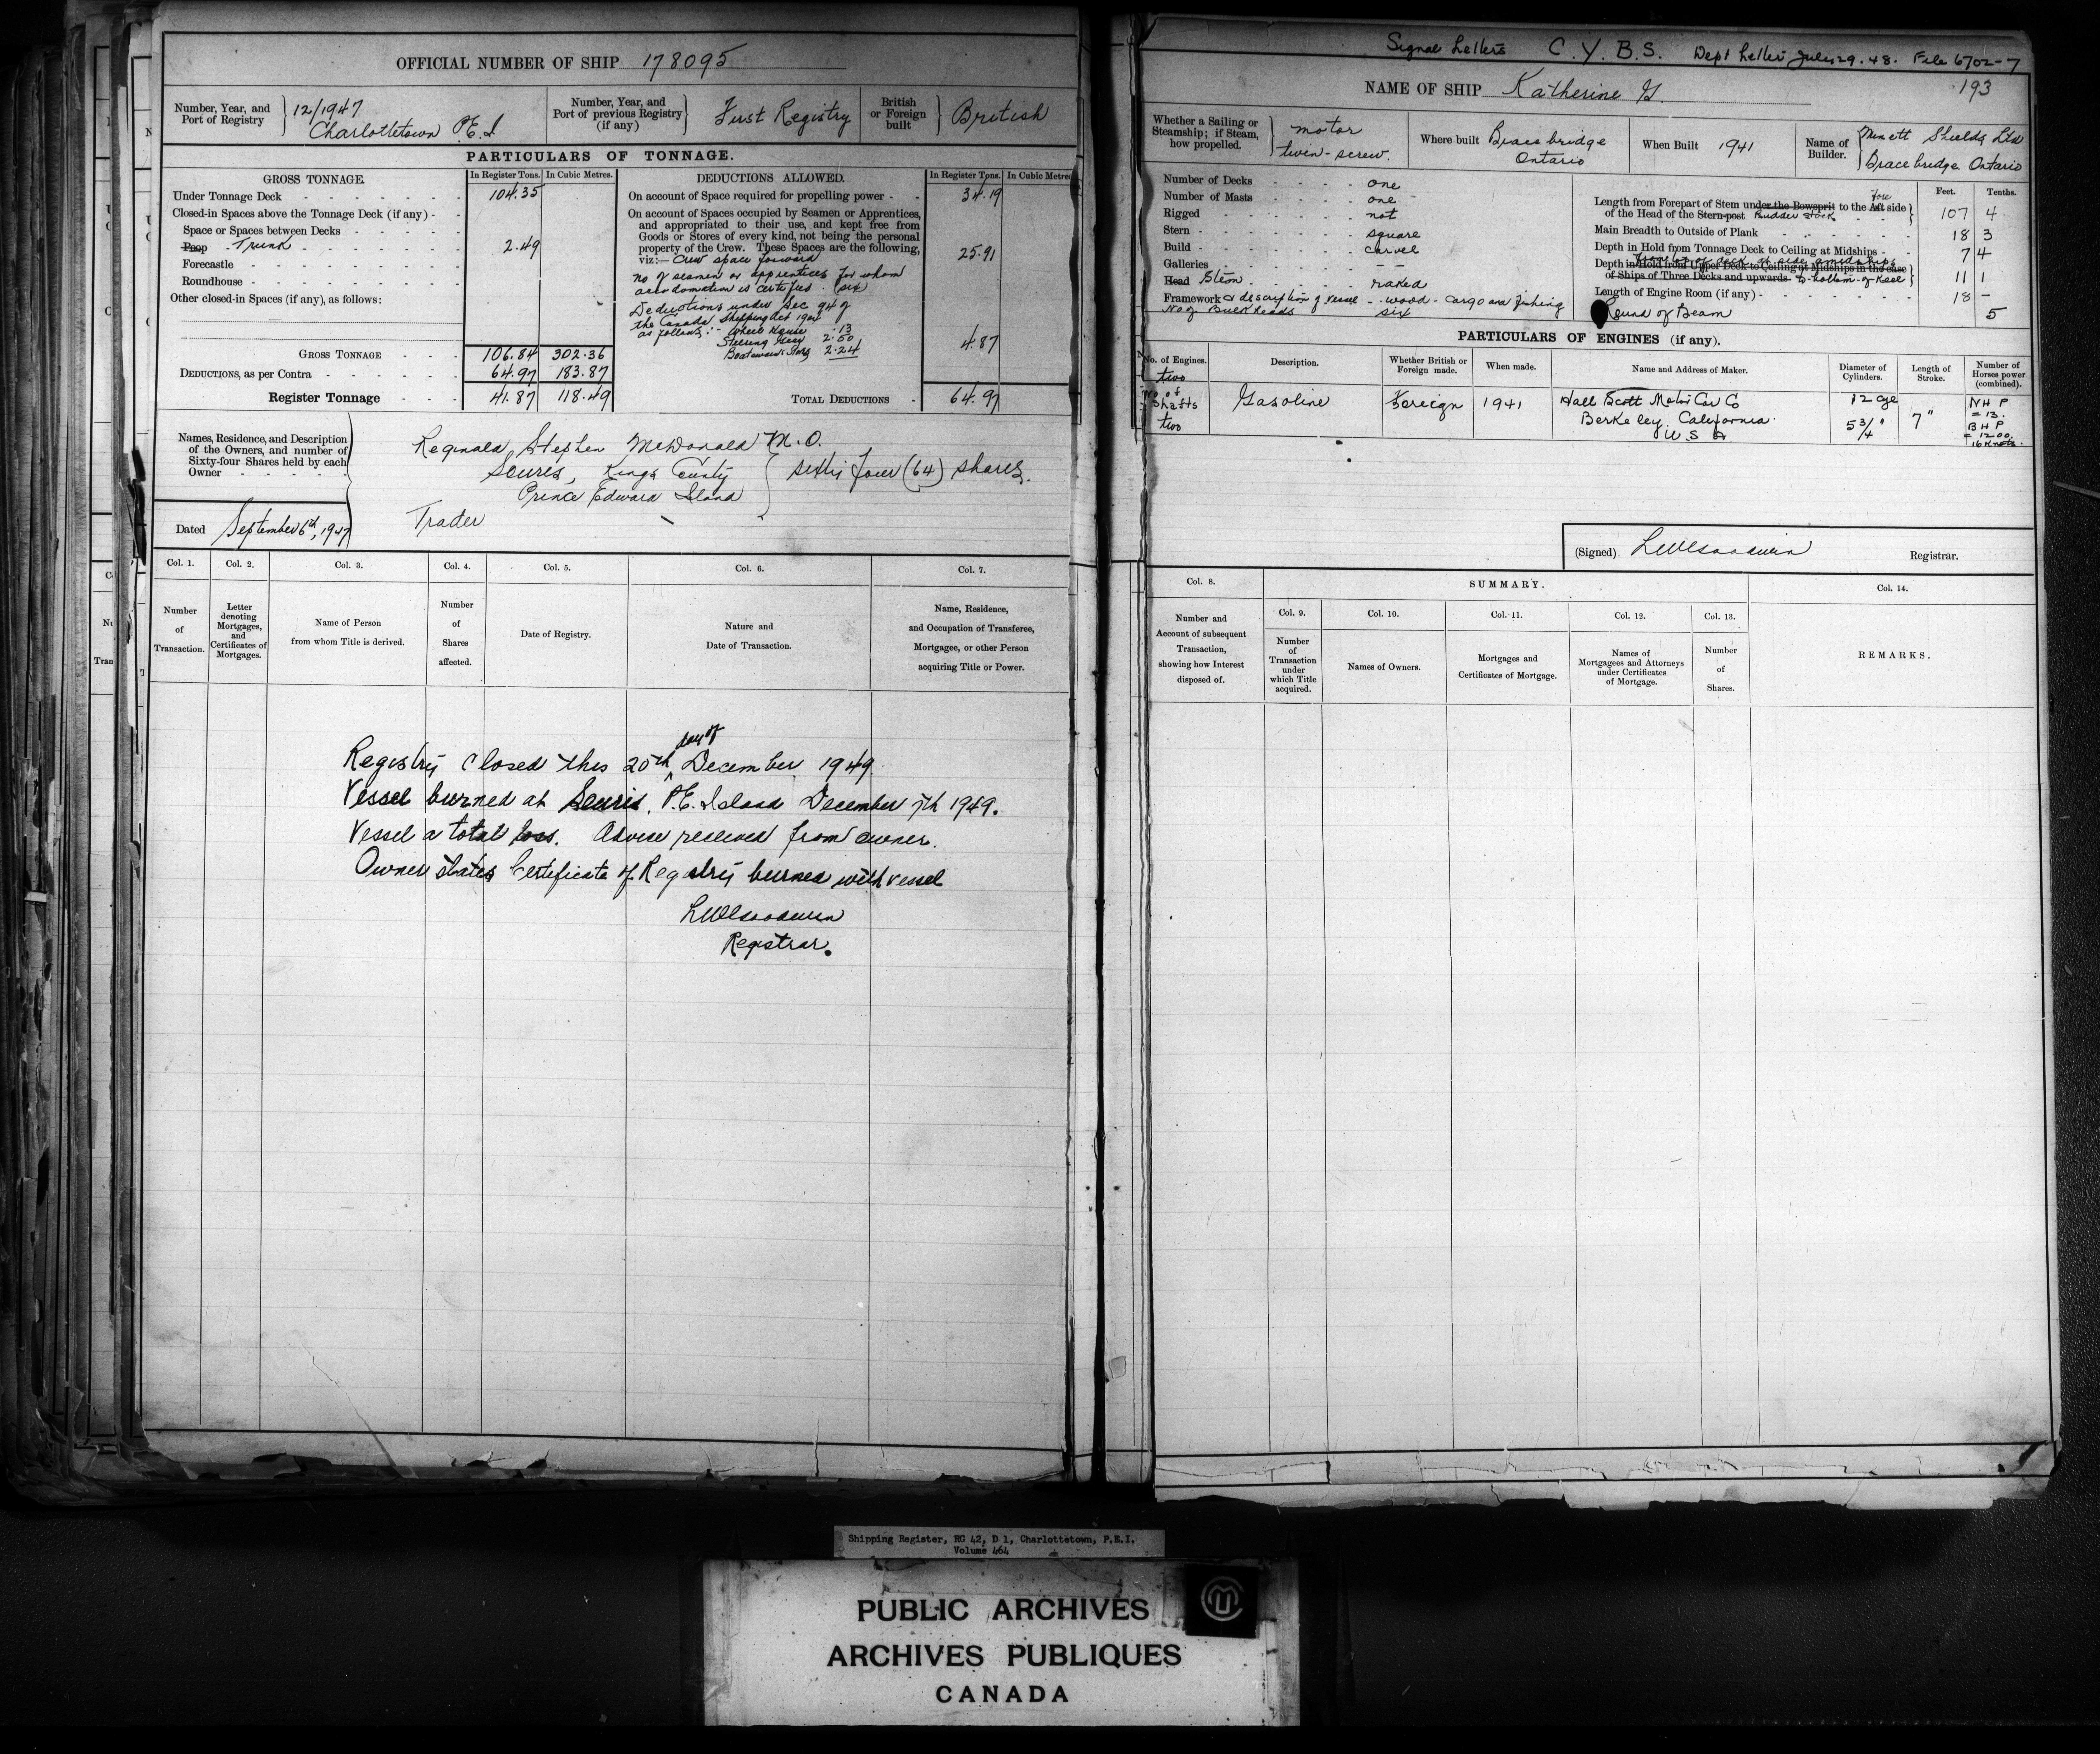 OFFICIAL NUMBER OF SHIP 178095
Number, Year, and Port of Registry 12/1947 Charlottetown P.E.I
Number, Year, and Port of previous Registry (if any) First Registry
British or Foreign built British
PARTICULARS OF TONNAGE.
GROSS TONNAGE. In Register Tons. In Cubic Metres.
Under Tonnage Deck 104.35
Closed-in Spaces above the Tonnage Deck (if any) -
Space or Spaces between Decks
Poop Trunk 2.49
Forecastle
Roundhouse
Other closed-in Spaces (if any), as follows:
GROSS TONNAGE 106.84 302.36
DEDUCTIONS, as per Contra 64.97 183.87
Register Tonnage 41.87 118.49
DEDUCTIONS ALLOWED. In Register Tons. In Cubic Metres
On account of Space required for propelling power - - 34.19
On account of Spaces occupied by Seamen or Apprentices,
and appropriated to their use, and kept free from
Goods or Stores of every kind, not being the personal
property of the Crew. These Spaces are the following, 25.91
viz:— Crew space forward
No of seamen or apprentices for whom
accomodation is certified (six)
Deductions under Sec 94 of
the Canada Shipping Act 1934
as follows:- Wheel House .13
Steering Gear 2.50 4.87
Boatswain's Stores 2.24
TOTAL DEDUCTIONS - 64.97
Names, Residence, and Description of the Owners, and number of Sixty-four Shares held by each Owner
Reginald Stephen McDonald M.O.
Souris, Kings County
Prince Edward Island
sixty four (64) shares.
Trader
Dated September 6th, 1947
Col. 1. Col. 2. Col. 3. Col. 4. Col. 5. Col. 6. Col. 7.
Number of Transaction.
Letter denoting Mortgages, and Certificates of Mortgages.
Name of Person from whom Title is derived.
Number of Shares affected.
Date of Registry.
Nature and Date of Transaction.
Name, Residence, and Occupation of Transferee, Mortgagee, or other Person acquiring Title or Power.
Registry closed this 20th day of December 1949.
Vessel burned at Souris, P.E. Island December 7th 1949.
Vessel a total loss. Advice received from owner.
Owner states Certificate of Registry burned with vessel
Registrar.
Signal Letters C. Y. B. S. Dept Letter July 29. 48. File 6702-7
NAME OF SHIP Katherine G. 193
Whether a Sailing or Steamship; if Steam, how propelled. motor twin-screw.
Where built Bracebridge Ontario
When Built 1941
Name of Builder. Minett Shields Ltd Bracebridge Ontario
Number of Decks one
Number of Masts one
Rigged not
Stern square
Build carvel
Galleries — —
Head Stem raked
Framework & description of vessel - wood - cargo and fishing
No of Bulkheads six
Feet. Tenths.
Length from Forepart of Stem under the Bowsprit to the Aft fore side
of the Head of the Stern-post Rudder stock 107 4
Main Breadth to Outside of Plank 18 3
Depth in Hold from Tonnage Deck to Ceiling at Midships - 7 4
Depth in Hold from Upper Deck to Ceiling at Midships in the case
from top of deck at side amidships
of Ships of Three Decks and upwards to bottom of Keel 11 1
Length of Engine Room (if any) - 18 -
Round of Beam 5
PARTICULARS OF ENGINES (if any).
No. of Engines. two
No of Shafts two
Description. Gasoline
Whether British or Foreign made. Foreign
When made. 1941
Name and Address of Maker. Hall Scott Motor Car Co
Berkeley, California
U S A
Diameter of Cylinders. 12 cyl 5 3/4"
Length of Stroke. 7"
Number of Horses power (combined). N H P = 13. B H P = 1200. 16 Knots.
(Signed) Registrar.
Col. 8. SUMMARY. Col. 14.
Col. 9. Col. 10. Col. 11. Col. 12. Col. 13.
Number and Account of subsequent Transaction, showing how Interest disposed of.
Number of Transaction under which Title acquired.
Names of Owners.
Mortgages and Certificates of Mortgage.
Names of Mortgagees and Attorneys under Certificates of Mortgage.
Number of Shares.
REMARKS.
Shipping Register, RG 42, D 1, Charlottetown, P.E.I.
Volume 464
PUBLIC ARCHIVES
ARCHIVES PUBLIQUES
CANADA